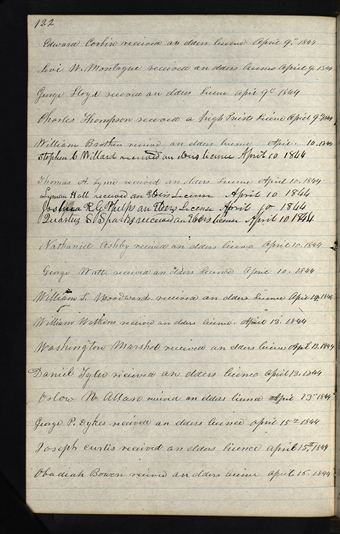 132
Edward Corbin received an elders licence April 9th 1844
Levi W. Montague received an elders licence April 9 1844
George Lloyd received an elders licene april 9th 1844
Charles Thompson received a high Priests licene April 9 1844
William Burtton received an elders licence April 10. 1844
Stephen C. Willard received an elders licence April 10 1844
Thomas A. Lyne received an elders licence April 10. 1844
Lyman Hall received an Elders Licence April 10 1844
R. G. Phelps an Elders Licence April 10 1844
Quartus S. Sparks received an Elders licence April 10 1844
Nathaniel Ashby received an elders licence April 10. 1844
George Watt received an elders licence April 10. 1844
William L. Woodward received an elders licence April 1844
William Watkins received an elders licence April 13. 1844
Washington Marshal received an elders licence April 13. 1844
Daniel Tyler received an elders licence April 13. 1844
Orlow M Allen received an elders licence April 13th 1844
George P. Dykes received an elders licence april 15th 1844
Joseph curtis received an elders licence april 15th 1844
Obadiah Bowen received an elders licence april 15. 1844